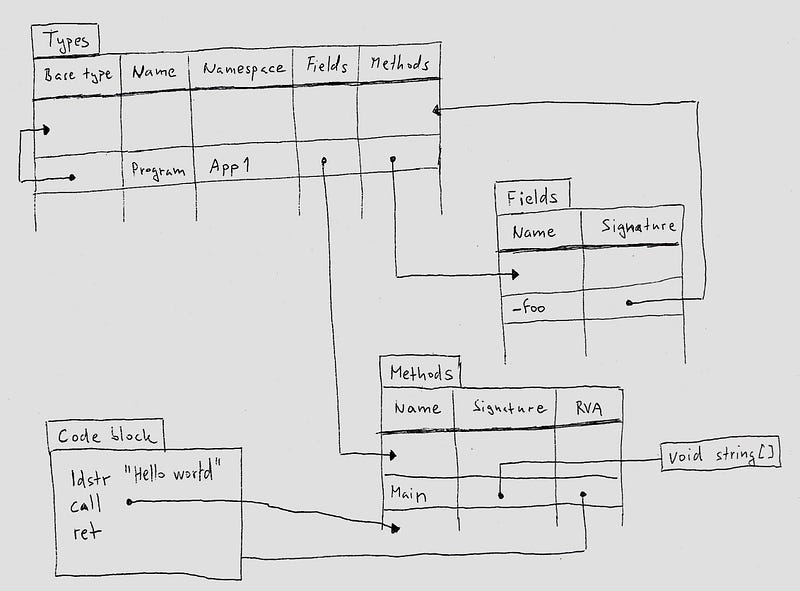 Types
Base type Name Namespace Fields Methods
Program App1
Fields
Name Signature
_foo
Methods
Name Signature RVA
Main
void string[]
Code block
ldstr "Hello world"
call
ret